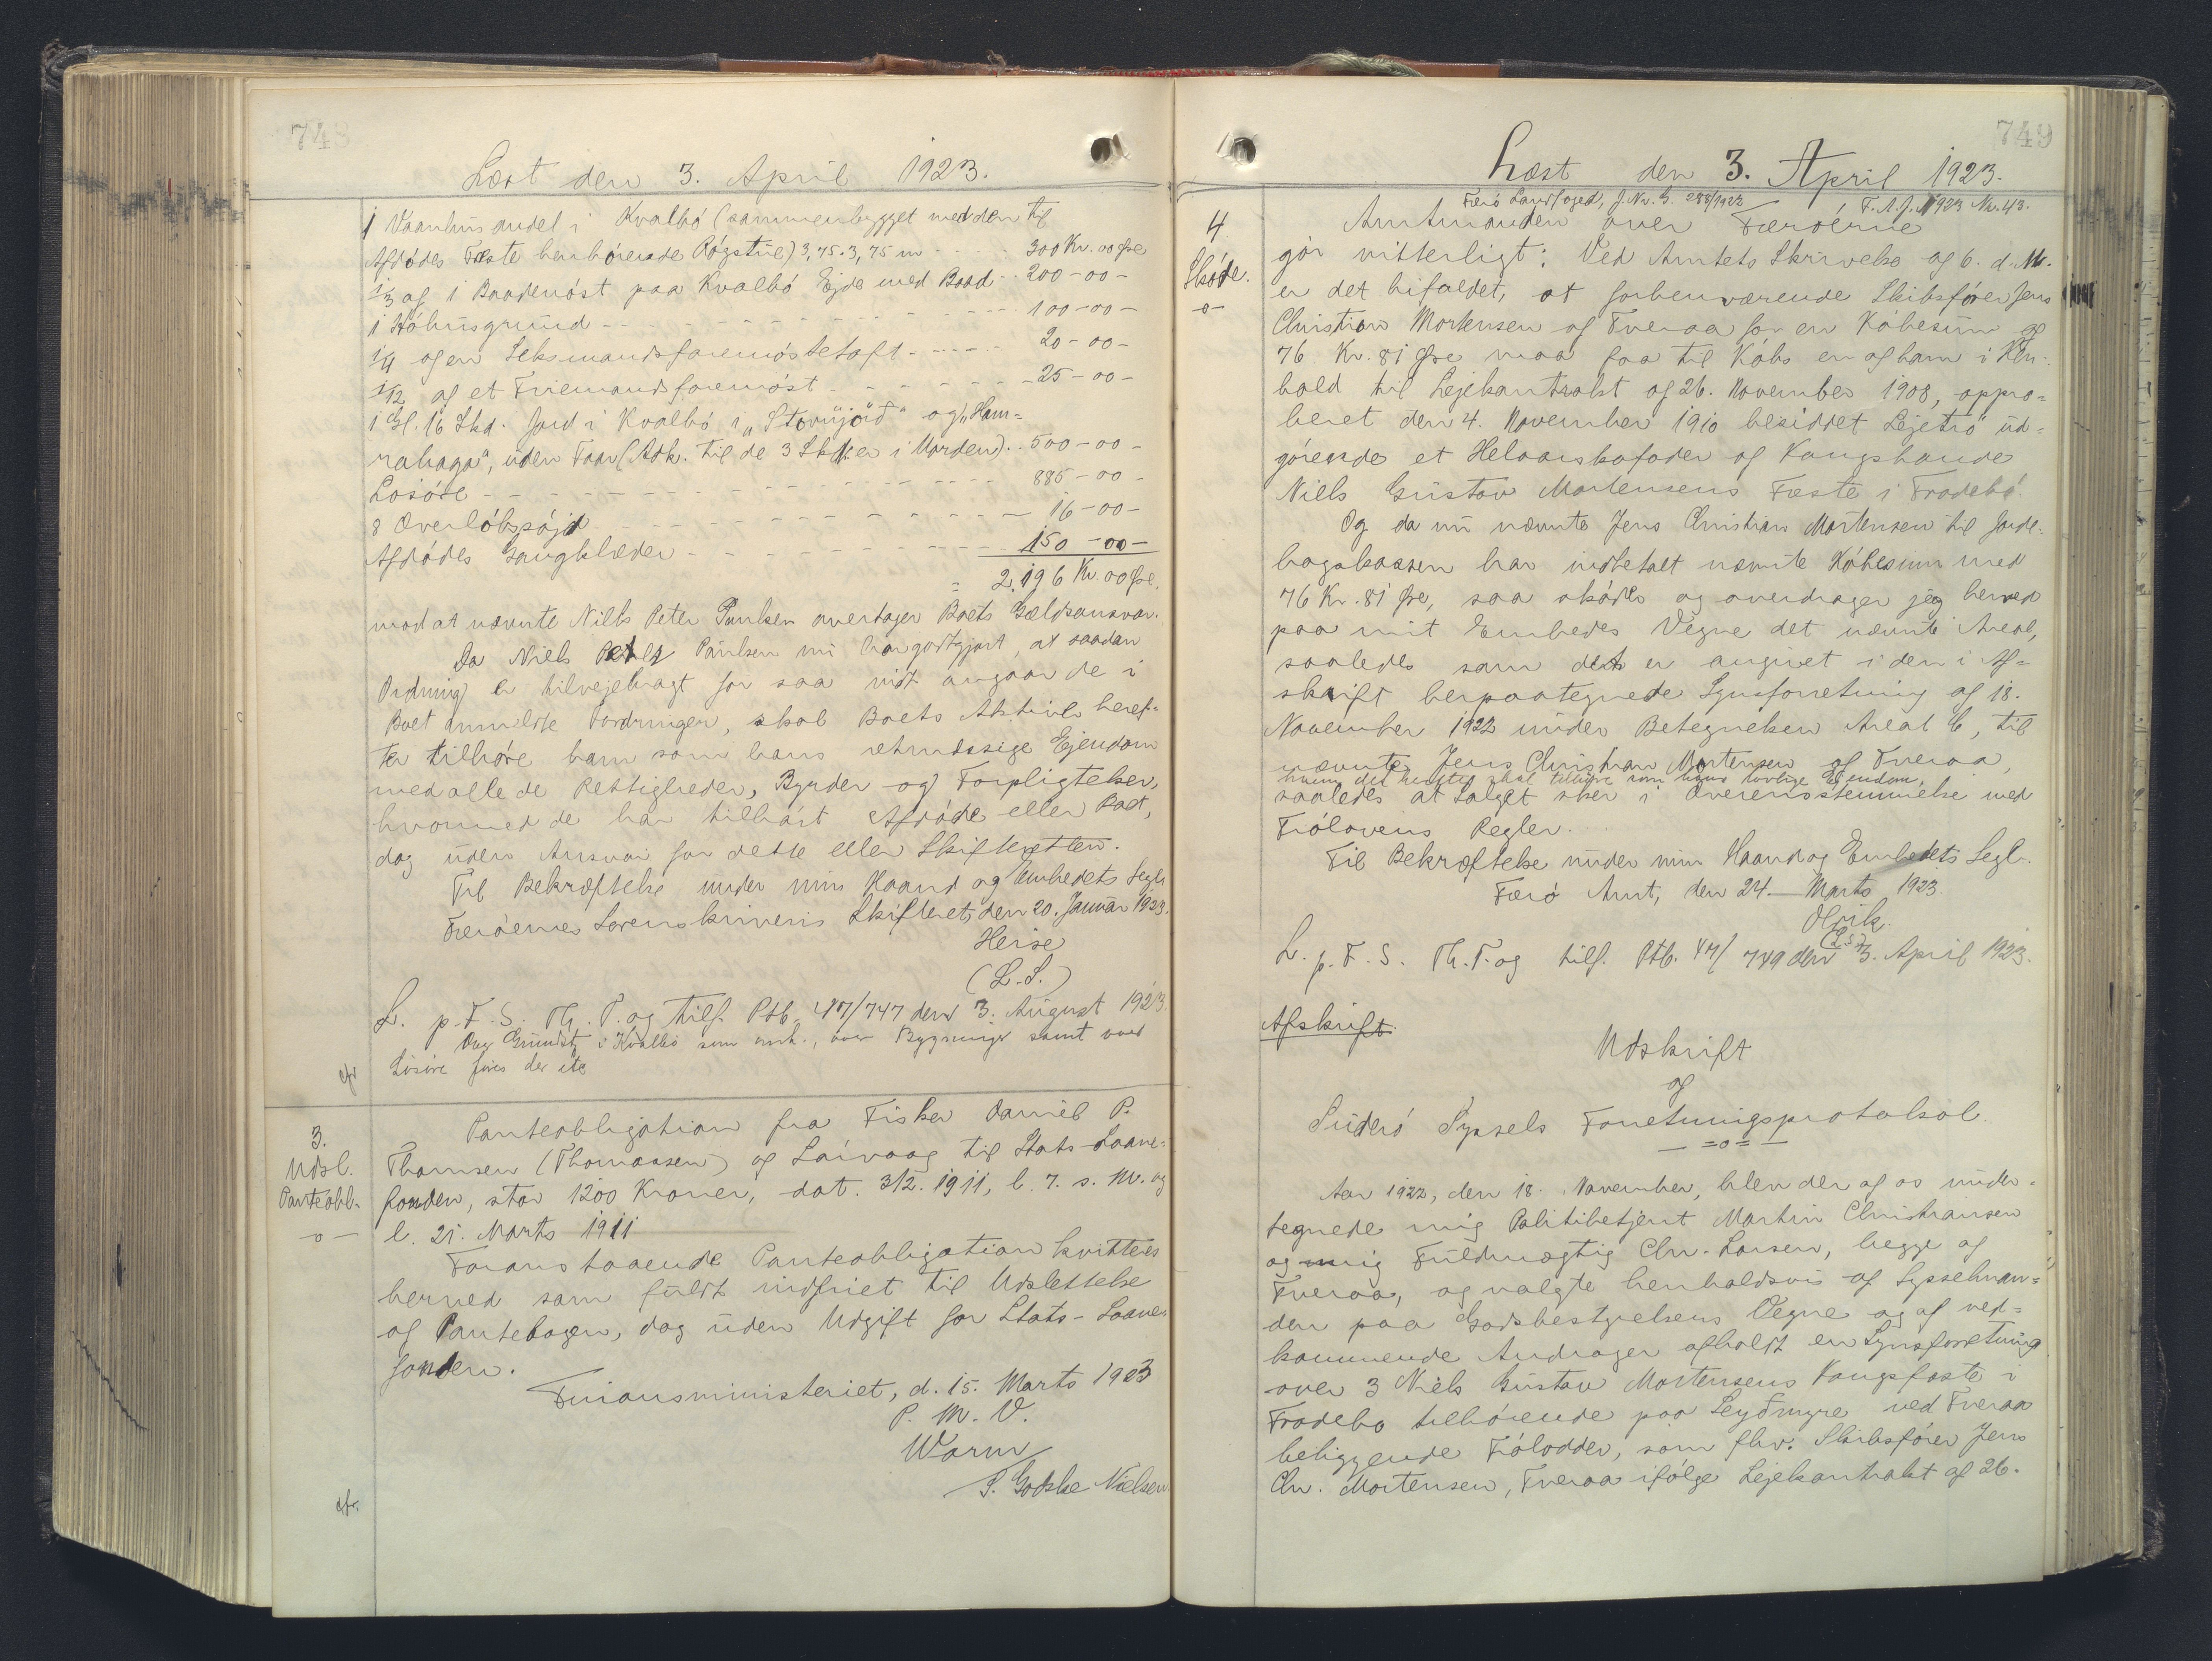 748
Læst den 3. April 1923.
1 Vaanhusandel i Kvalbø (sammenbygget med den til
Afdødes Fæste henhørende Røgstue) 3,75 . 3,75 m - - - 300 Kr. 00 Øre
1/3 af 1 Baadenøst paa Kvalbø Ejde med Baad - - 200 - 00 -
1 Høhusgrund - - - 100 - 00 -
1/4 af en Seksmandsfarenøstetoft - - - 20 - 00 -
1/12 af et Friemandsfarenøst - - - 25 - 00 -
1 Gl. 16 Skd. Jord i Kvalbø i "Storujørd" og "Ham=
rahaga", uden Faar (Adk. til de 3 Skd. er i Orden) . . 500 - 00 -
Løsøre - - - 885 - 00 -
8 Overløbssøjd - - - 16 - 00 -
Afdødes Gangklæder - - - 150 - 00 -
= 2.196 Kr. 00 Øre.
mod at nævnte Niels Peter Poulsen overtager Boets Gældsansvar.
Da Niels Peter Poulsen nu har godtgjort, at saadan
Ordning er tilvejebragt for saa vidt angaar de i
Boet anmeldte Fordringer, skal Boets Aktiver heref=
ter tilhøre ham som hans retmæssige Ejendom
med alle de Rettigheder, Byrder og Forpligtelser,
hvormed de har tilhørt Afdøde eller Boet,
dog uden Ansvar for dette eller Skifteretten.
Til Bekræftelse under min Haand og Embedets Segl.
Færøernes Sorenskriveris Skifteret, den 20. Januar 1923.
Heise
(L.S.)
L. p. F. S. Th. T. og tilf. Ptb. 47/747 den 3. August 1923.
Over Grundst. i Kvalbø som anh., over Bygninger samt over
Løsøre føres der ikke
cfr
3.
Udsl.
Panteobl.
-o-
Panteobligation fra Fisker Daniel P.
Thomsen (Thomassen) af Laívaag til Stats-Laane-
fonden, stor 1200 Kroner, dat. 3/2. 1911, l. 7. s. M. og
l. 21. Marts 1911
Foranstaaende Panteobligation kvitteres
herved som fuldt indfriet til Udslettelse
af Pantebogen, dog uden Udgift for Stats-Laane-
fonden.
Finansministeriet, d. 15. Marts 1923
P. M. V.
Warm
S. Godske Nielsen
cfr.
749
Læst den 3. April 1923.
Færø Landfoged, J. Nr. G. 288/1922
F. A. J. 1923 Nr. 43.
4
Skøde.
-o-
Amtmanden over Færøerne
gør vitterligt: Ved Amtets Skrivelse af 6. d. M.
er det bifaldet, at forhenværende Skibsfører Jens
Christian Mortensen af Tveraa for en Købesum af
76 Kr. 81 Øre maa faa til Købs en af ham i Hen-
hold til Lejekontrakt af 26. November 1908, appro=
beret den 4. November 1910 besiddet Lejetrø ud=
gørende et Helaarskofoder af Kongsbonde
Niels Gustav Mortensens Fæste i Frodebø.
Og da nu nævnte Jens Christian Mortensen til Jorde-
bogskassen har indbetalt nævnte Købesum med
76 Kr. 81 Øre, saa skøder og overdrager jeg herved
paa mit Embedes Vegne det nævnte Areal,
saaledes som det er angivet i den i Af=
skrift herpaategnede Synsforretning af 18.
November 1922 under Betegnelsen Areal C, til
nævnte Jens Christian Mortensen af Tveraa,
hvem det herefter skal tilhøre som hans lovlige Ejendom,
saaledes at Salget sker i Overensstemmelse med
Trølovens Regler.
Til Bekræftelse under min Haand og Embedets Segl.
Færø Amt, den 24. Marts 1923.
Olrik
(L.S.)
L. p. F. S. Th. T. og tilf. Ptb. 47/749 den 3. April 1923.
Afskrift.
Udskrift
af
Suderø Syssels Forretningsprotokol
- =o= -
Aar 1922, den 18. November, blev der af os under-
tegnede mig Politibetjent Martin Christiansen
og mig Fuldmægtig Chr. Larsen, begge af
Tveraa, og valgte henholdsvis af Sysselman=
den paa Godsbestyrelsens Vegne og af ved=
kommende Andrager afholdt en Synsforretning
over 3 Niels Gustav Mortensens Kongsfæste i
Frodebø tilhørende paa Leyðmyre ved Tveraa
beliggende Trølodder, som fhv. Skibsfører Jens
Chr. Mortensen, Tveraa ifølge Lejekontrakt af 26.